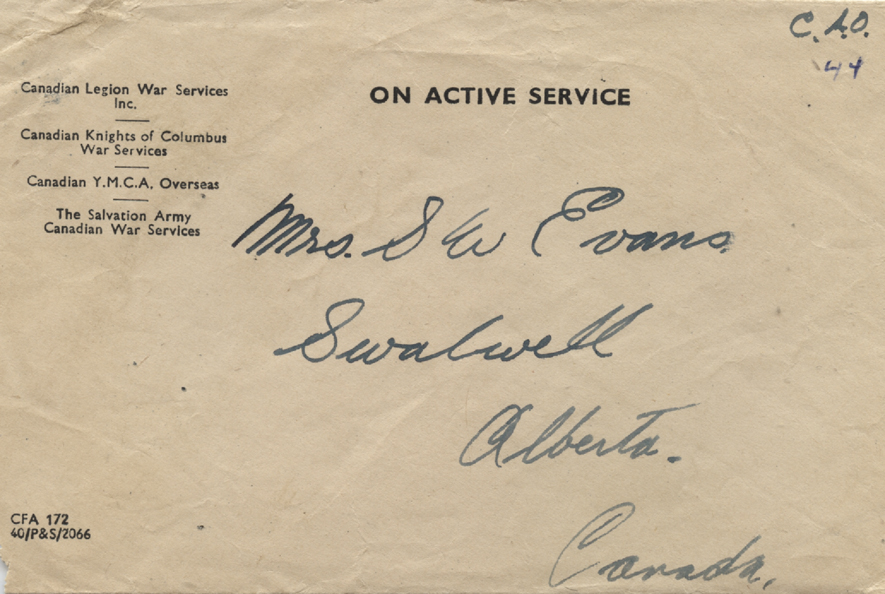 C.A.O.
44
ON ACTIVE SERVICE
Canadian Legion War Services
Inc.
Canadian Knights of Columbus
War Services
Canadian Y.M.C.A. Overseas
The Salvation Army
Canadian War Services
Mrs. S W Evans
Swalwell
Alberta.
Canada.
CFA 172
40/P&S/2066